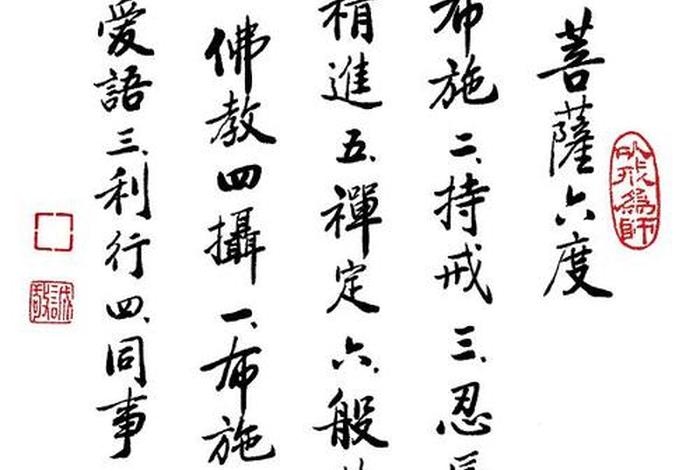 以戒為師
菩薩六度
布施二、持戒三、忍
精進五、禪定六、般
佛教四攝一、布施
愛語三、利行四、同事
誠敬